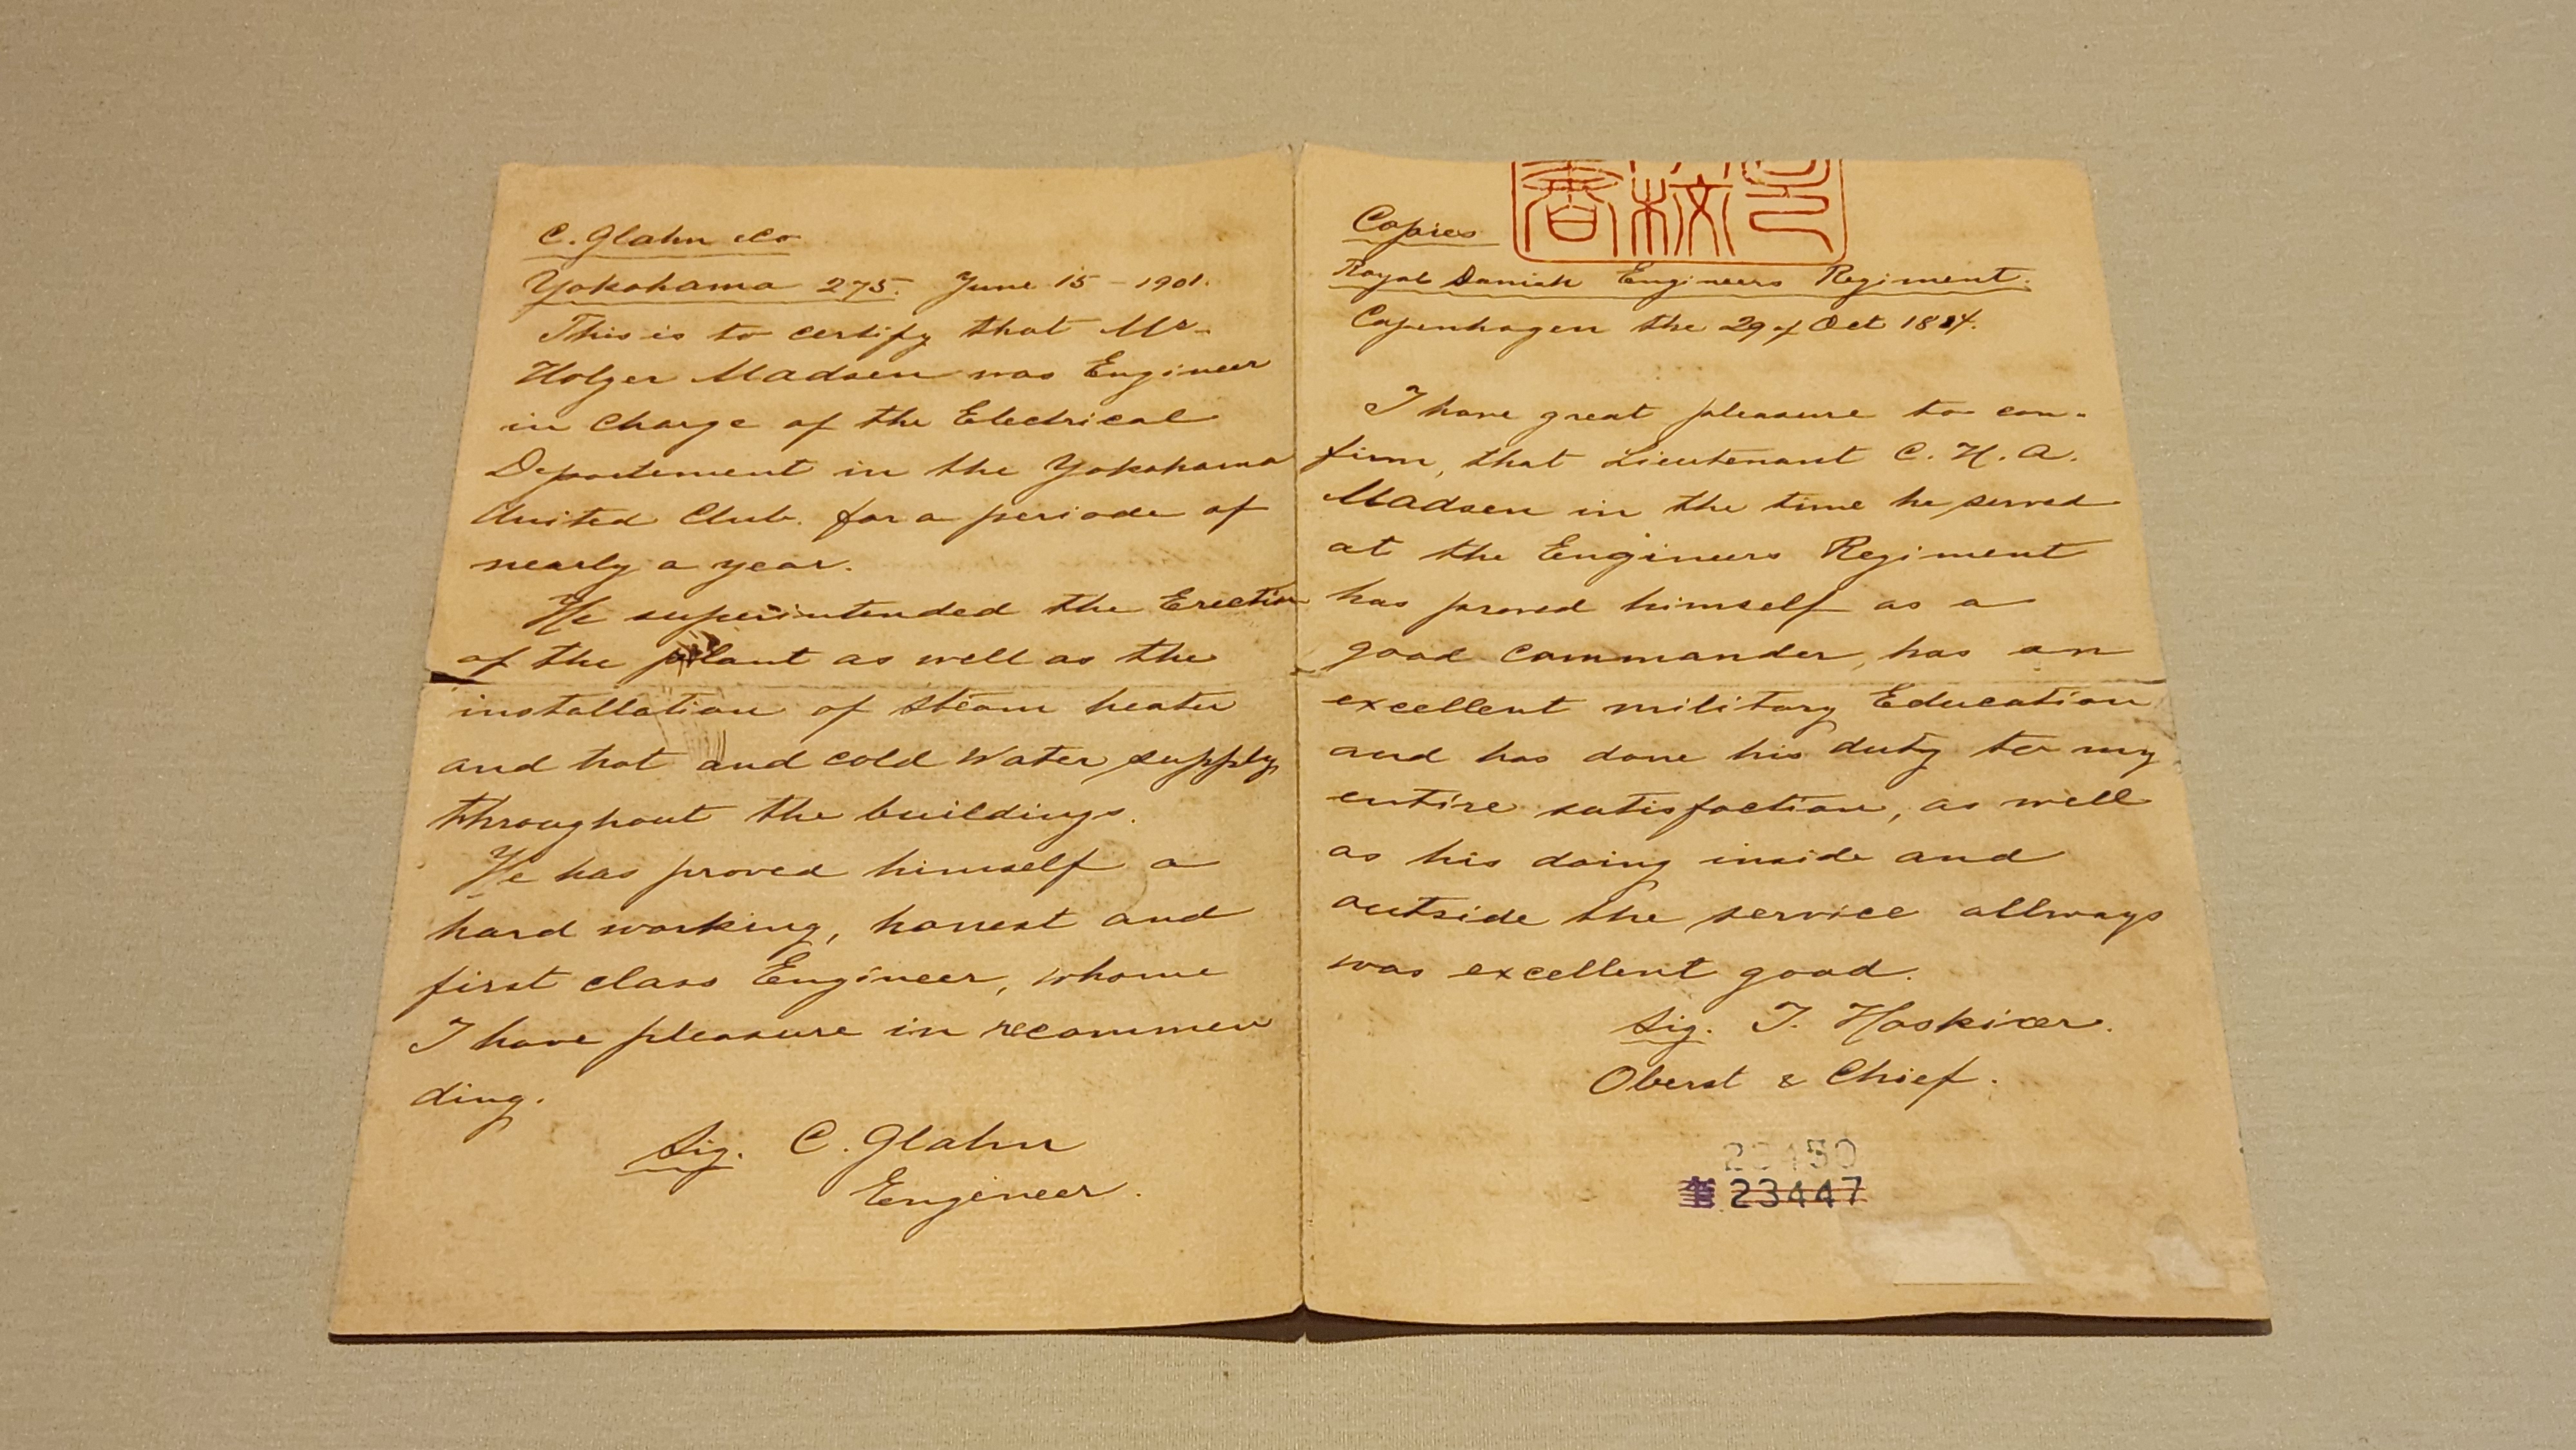 C. Glahn & Co
Yokohama 275. June 15 - 1901.
This is to certify that Mr.
Holger Madsen was Engineer
in charge of the Electrical
Departement in the Yokohama
United Club. for a periode of
nearly a year.
He superintended the Erection
of the plant as well as the
installation of steam heater
and hot and cold Water supply
throughout the buildings.
He has proved himself a
hard working, honest and
first class Engineer, whome
I have pleasure in recommen
ding.
Sig. C. Glahn
Engineer.
Copies
Royal Danish Engineers Regiment.
Copenhagen the 29 of Oct
I have great pleasure to con-
firm, that Lieutenant C. H. A.
Madsen in the time he served
at the Engineers Regiment
has proved himself as a
good commander, has an
excellent military Education
and has done his duty to my
entire satisfaction, as well
as his doing inside and
outside the service allways
was excellent good.
Sig. T. Hoskiær.
Oberst & Chief.
23447